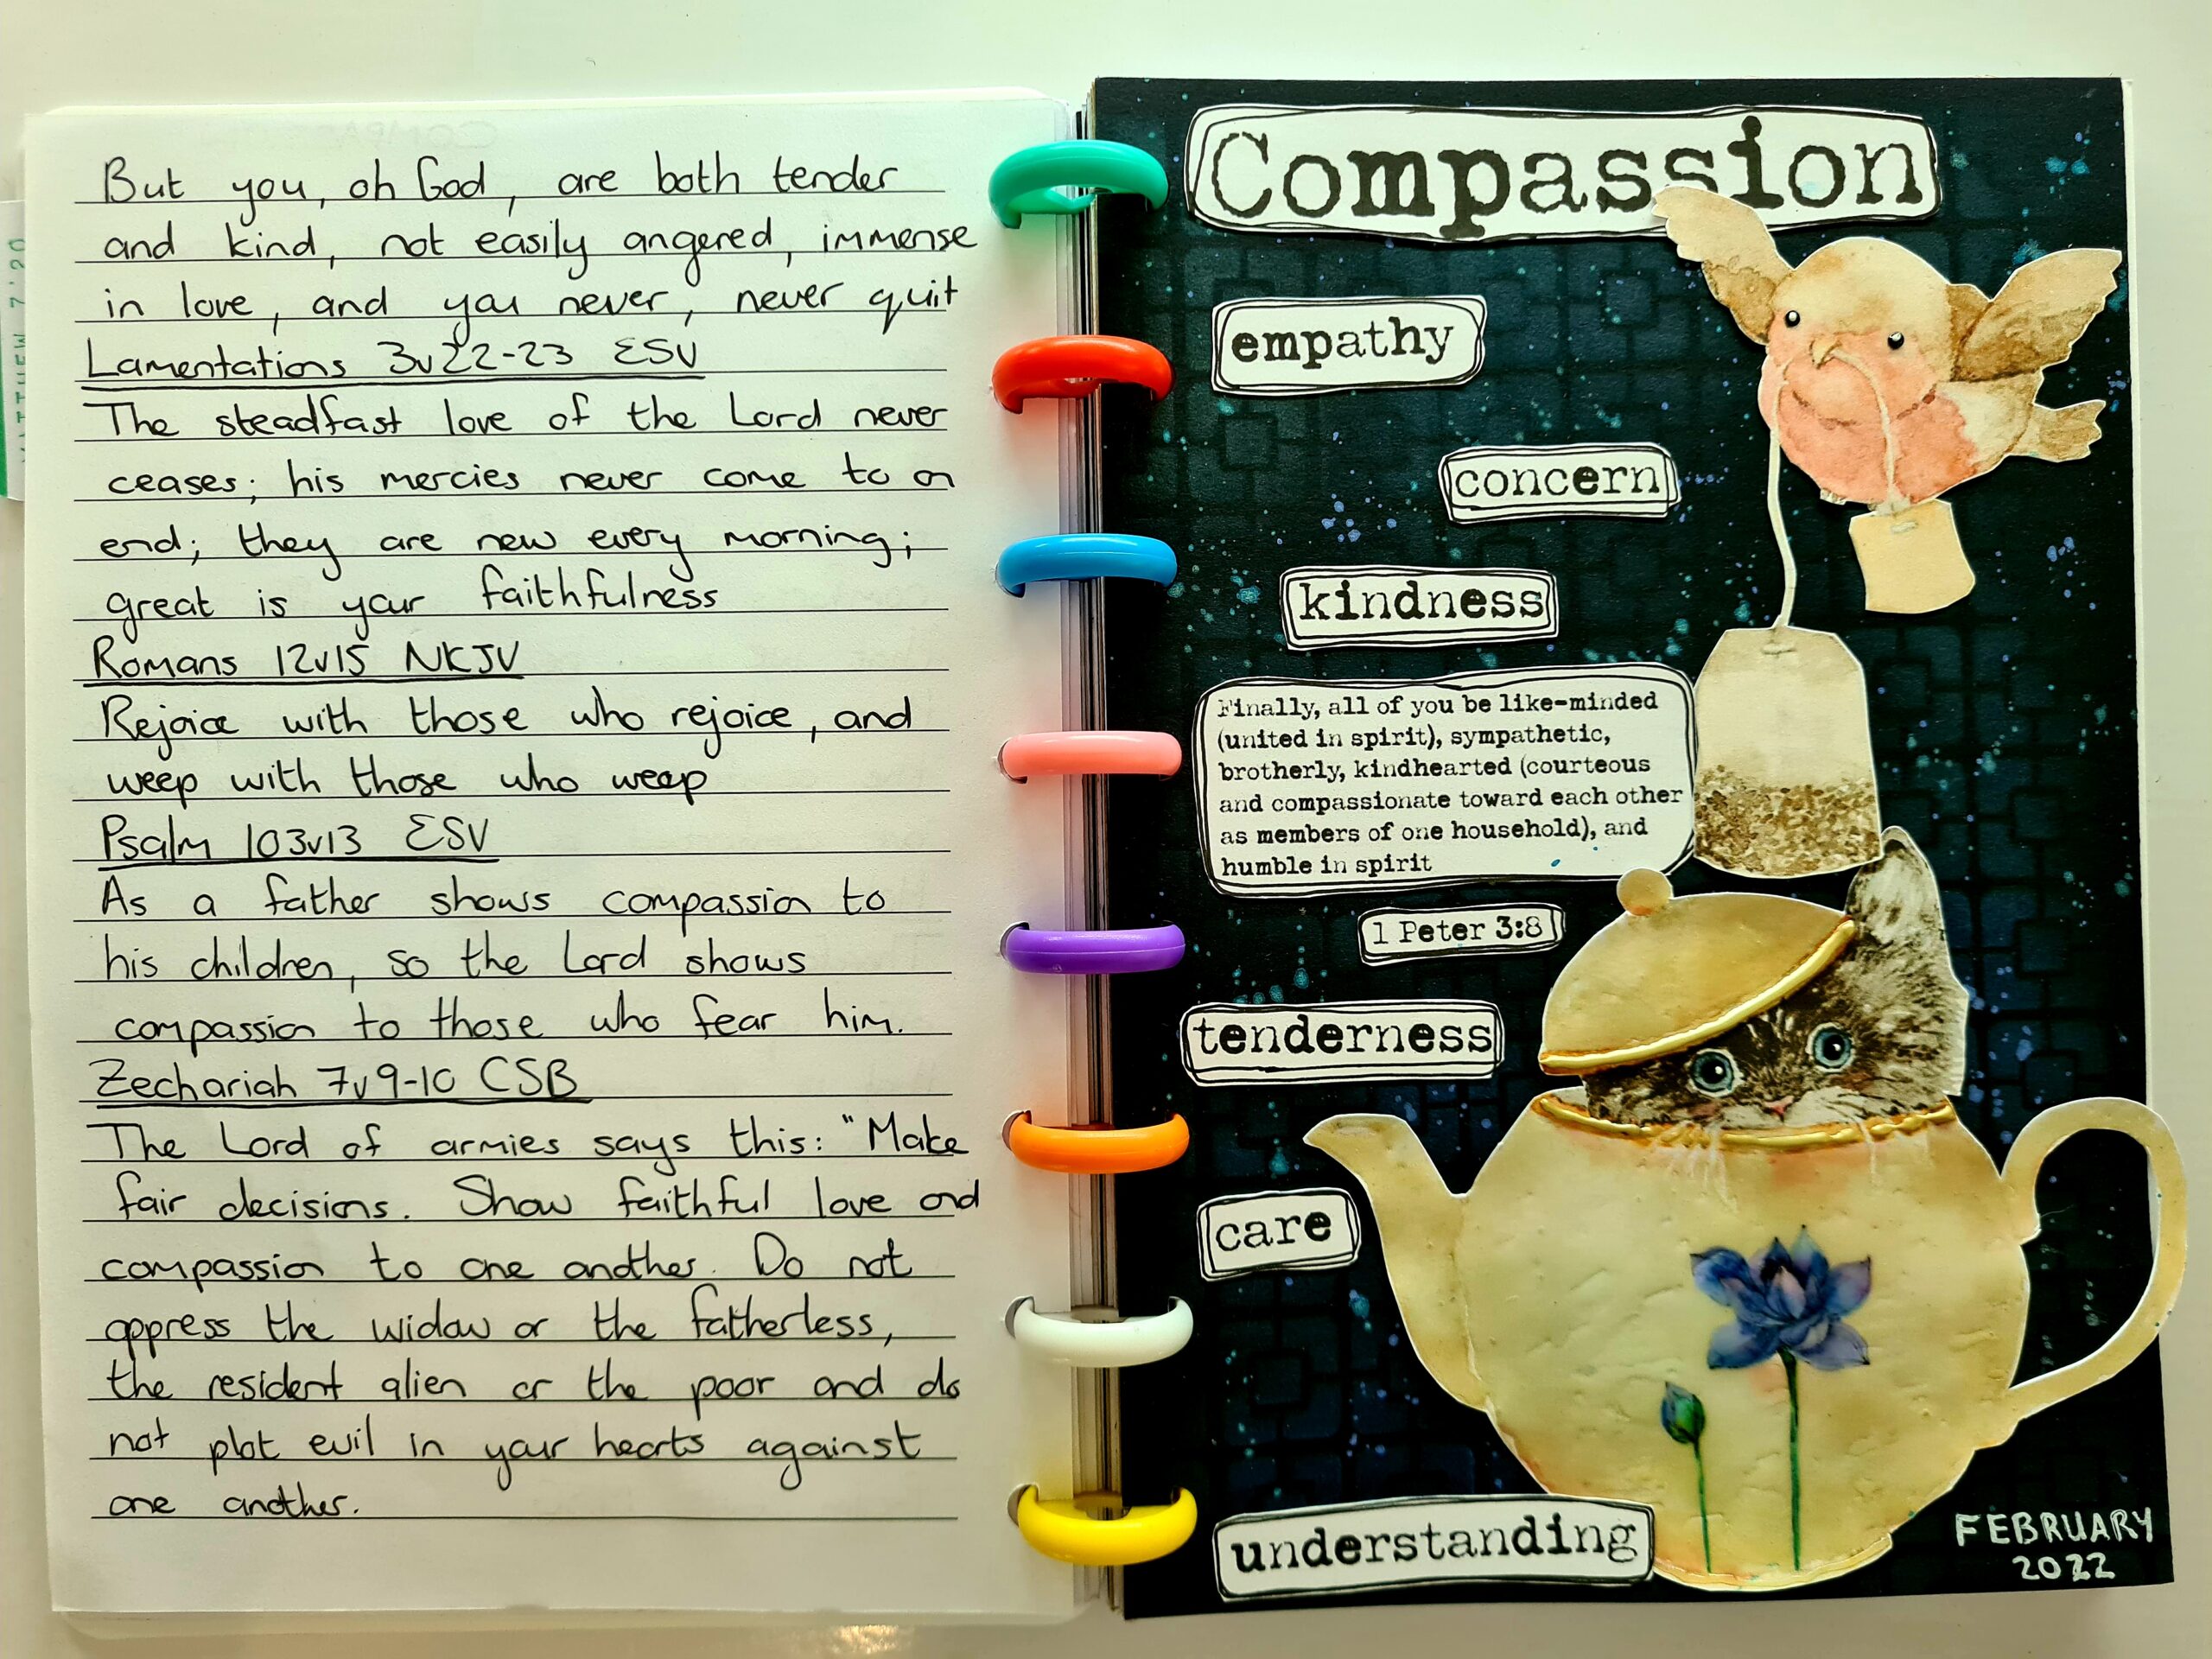 But you, oh God, are both tender
and kind, not easily angered, immense
in love, and you never, never quit
Lamentations 3v22-23 ESV
The steadfast love of the Lord never
ceases; his mercies never come to an
end; they are new every morning;
great is your faithfulness
Romans 12v15 NKJV
Rejoice with those who rejoice, and
weep with those who weep
Psalm 103v13 ESV
As a father shows compassion to
his children, so the Lord shows
compassion to those who fear him.
Zechariah 7v9-10 CSB
The Lord of armies says this: "Make
fair decisions. Show faithful love and
compassion to one another. Do not
oppress the widow or the fatherless,
the resident alien or the poor and do
not plot evil in your hearts against
one another.
MATTHEW 7:20
Compassion
empathy
concern
kindness
Finally, all of you be like-minded
(united in spirit), sympathetic,
brotherly, kindhearted (courteous
and compassionate toward each other
as members of one household), and
humble in spirit
1 Peter 3:8
tenderness
care
understanding
FEBRUARY
2022